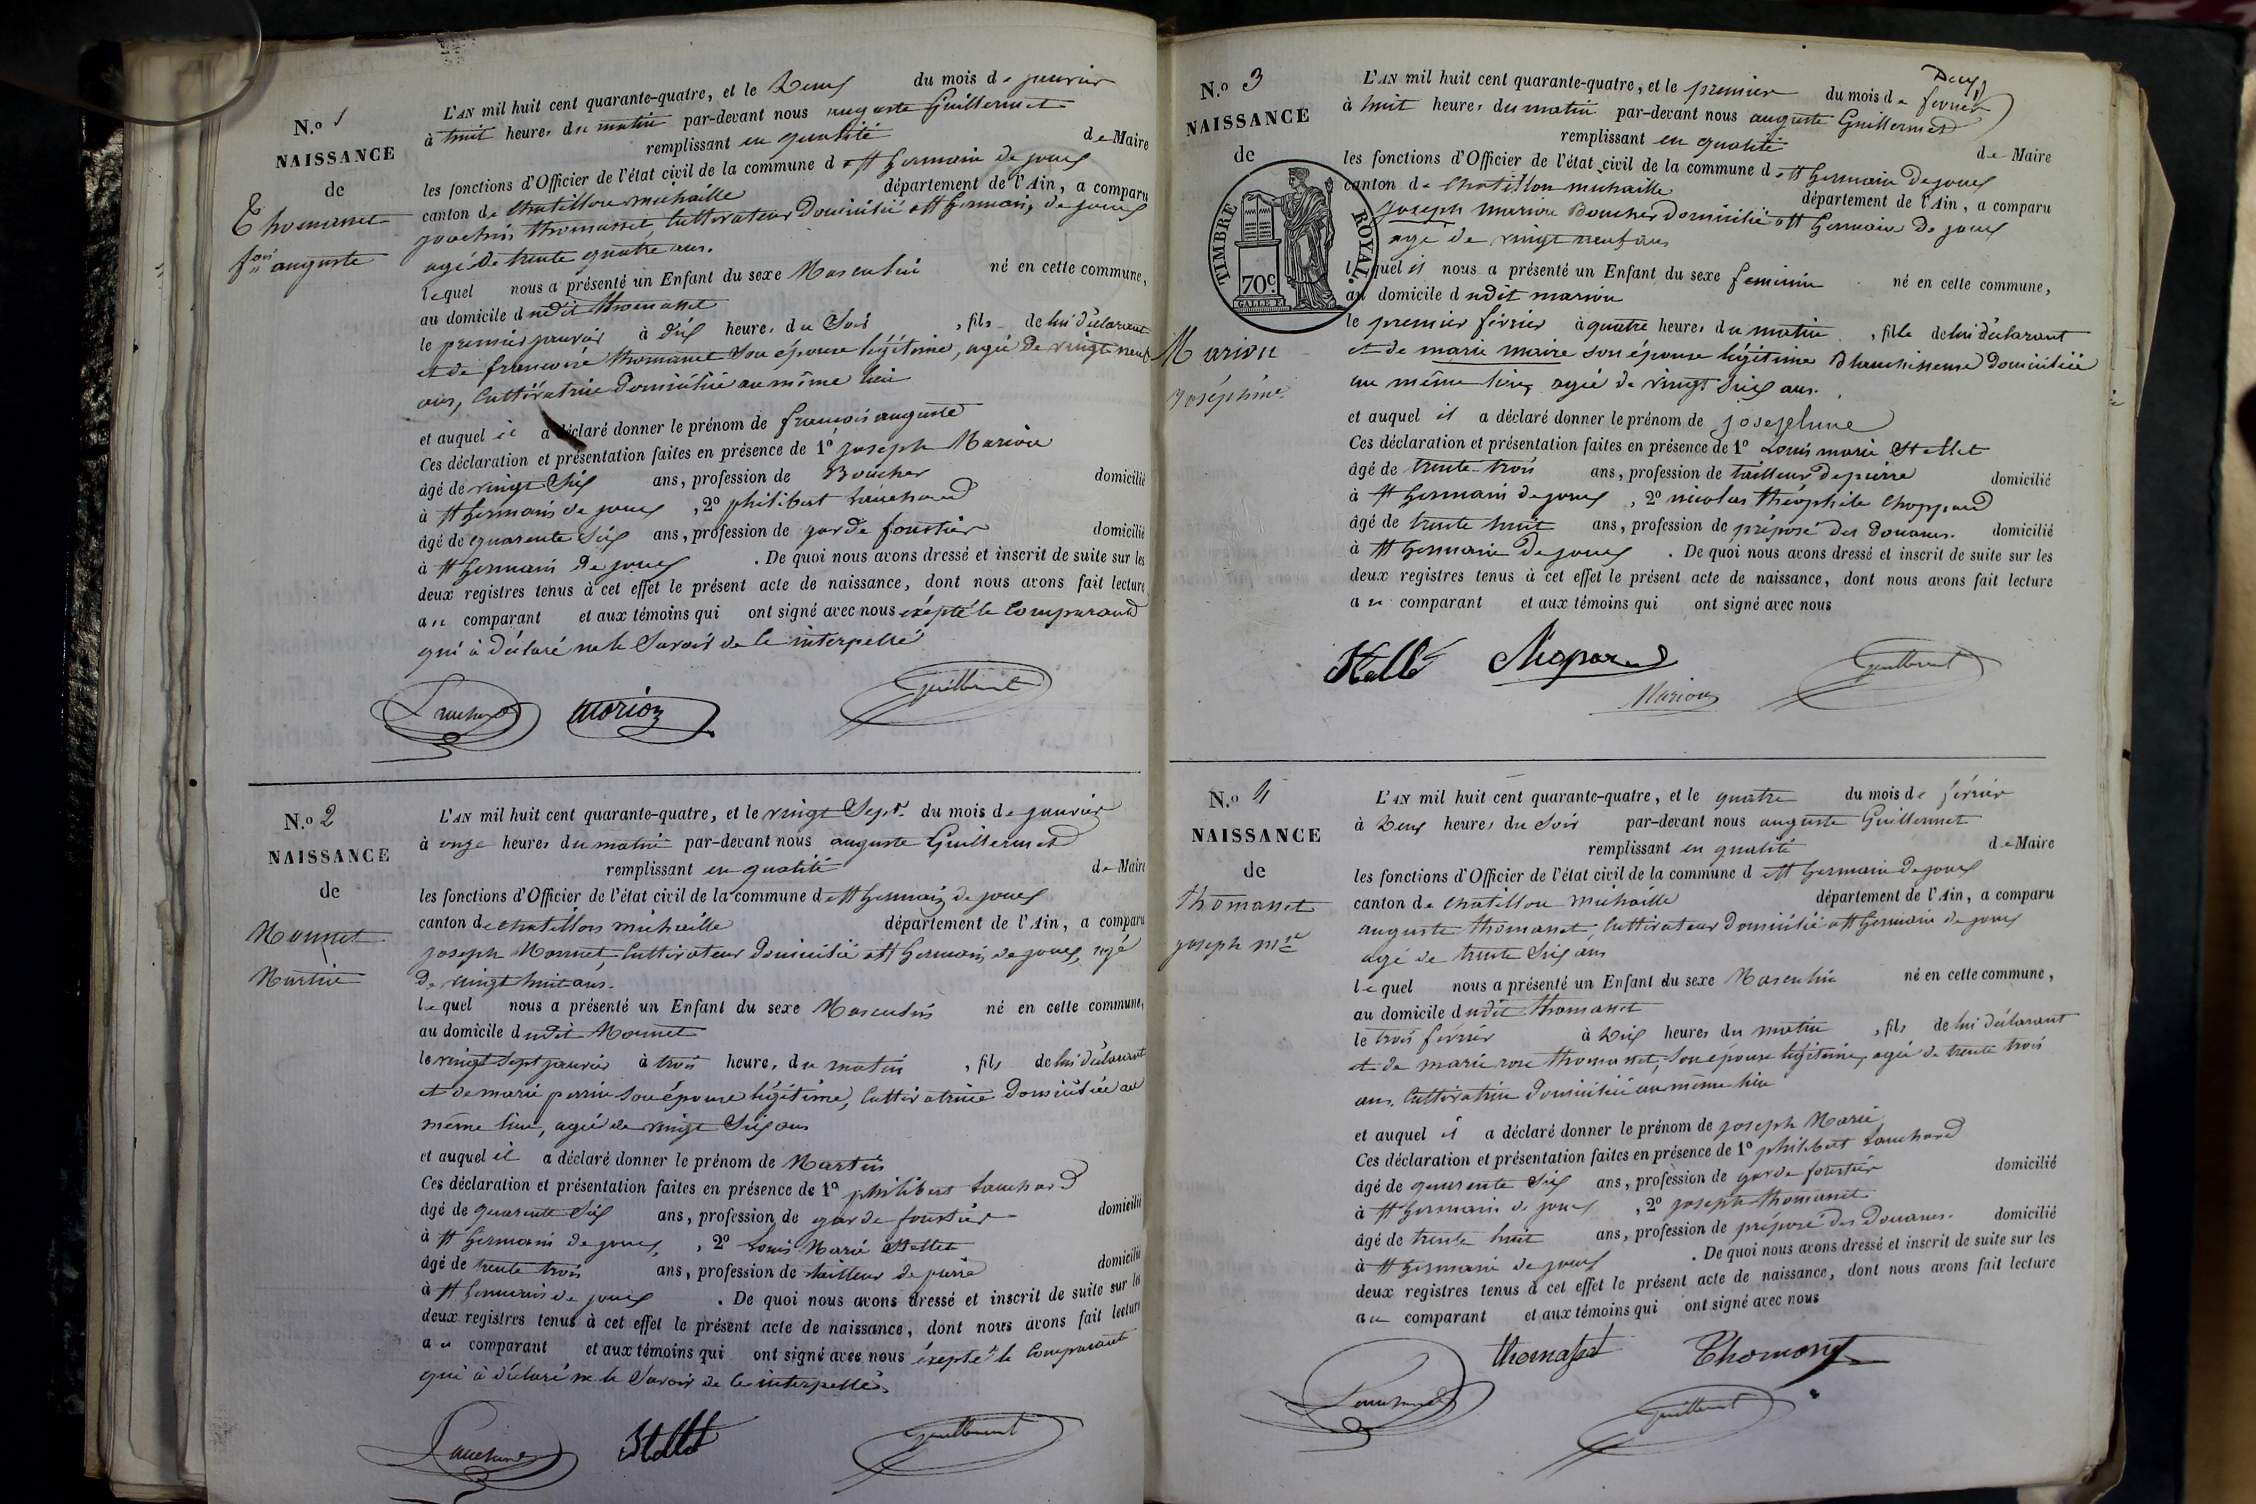 N.o 1
NAISSANCE
de
Thomasset
fois auguste
L'AN mil huit cent quarante-quatre, et le Deux du mois de janvier
à huit heures du matin par-devant nous auguste Guillermet
remplissant en qualité de Maire
les fonctions d'Officier de l'état civil de la commune d e St Germain de joux
canton de Chatillon michaille département de l'Ain, a comparu
thomasset, Cultivateur Domicilié a St Germain de joux
agé de trente quatre ans.
lequel nous a présenté un Enfant du sexe Masculin né en cette commune,
au domicile dudit thomasset
le premier janvier à dix heures du Soir , fils de lui déclarant
et de francoise thomasset Son épouse légitime, agée de vingt neuf
ans, Cultivatrice Domiciliée au même lieu
et auquel il a déclaré donner le prénom de francois auguste
Ces déclaration et présentation faites en présence de 1o joseph Marion
âgé de vingt Six ans, profession de Boucher domicilié
à St Germain de joux , 2o philibert Lauchard
âgé de quarente Six ans, profession de garde foustier domicilié
à St Germain de joux . De quoi nous avons dressé et inscrit de suite sur les
deux registres tenus à cet effet le présent acte de naissance, dont nous avons fait lecture
au comparant et aux témoins qui ont signé avec nous éxépté le Comparand
qui à déclaré ne le Savoir de ce interpellé
Marion Guillermet
N.o 2
NAISSANCE
de
Monnet
Martin
L'AN mil huit cent quarante-quatre, et le vingt Sept du mois de janvier
à onze heures du matin par-devant nous auguste Guillermet
remplissant en qualité de Maire
les fonctions d'Officier de l'état civil de la commune d e St Germain de joux
canton de chatillon michaille département de l'Ain, a comparu
joseph Monnet, Cultivateur domicilié a St Germain de joux, agé
De vingt huit ans.
lequel nous a présenté un Enfant du sexe Masculin né en cette commune,
au domicile dudit Monnet
le vingt Sept janvier à trois heures du matin , fils de lui déclarant
et de marie perrin Son épouse légitime, Cultivatrice Domiciliée au
même lieu, agée de vingt Six ans
et auquel il a déclaré donner le prénom de Martin
Ces déclaration et présentation faites en présence de 1o philibert Lauchard
âgé de quarente Six ans, profession de garde foustier domicilié
à St Germain de joux , 2o Louis Marie Stallet
âgé de trente trois ans, profession de tailleur de pierre domicilié
à St Germain de joux . De quoi nous avons dressé et inscrit de suite sur les
deux registres tenus à cet effet le présent acte de naissance, dont nous avons fait lecture
au comparant et aux témoins qui ont signé avec nous éxepté le Comparant
qui à déclaré ne le Savoir de ce interpellé
Lauchard Guillermet
N.o 3
NAISSANCE
de
TIMBRE ROYAL.
70c
GALLE F.
Marion
Joséphine
Deux
L'AN mil huit cent quarante-quatre, et le premier du mois de février
à huit heures du matin par-devant nous auguste Guillermet
remplissant en qualité de Maire
les fonctions d'Officier de l'état civil de la commune d e St Germain De joux
canton de Chatillon michaille département de l'Ain, a comparu
joseph marion Boucher domicilié a St Germain de joux
agé de vingt neuf ans
lequel il nous a présenté un Enfant du sexe feminin né en cette commune,
au domicile dudit marion
le premier février à quatre heures du matin , fille de lui déclarant
et de marie maire son épouse légitime Blanchisseuse domiciliée
au même lieu, agée de vingt Six ans.
et auquel il a déclaré donner le prénom de josephine
Ces déclaration et présentation faites en présence de 1o Louis marie Stallet
âgé de trente-trois ans, profession de tailleur de pierre domicilié
à St Germain de joux , 2o nicolas théophile Choppard
âgé de trente huit ans, profession de préposé des Douanes. domicilié
à St Germain De joux . De quoi nous avons dressé et inscrit de suite sur les
deux registres tenus à cet effet le présent acte de naissance, dont nous avons fait lecture
au comparant et aux témoins qui ont signé avec nous
Marion Guillermet
N.o 4
NAISSANCE
de
Thomasset
joseph Mie
L'AN mil huit cent quarante-quatre, et le quatre du mois de février
à Deux heures du Soir par-devant nous auguste Guillermet
remplissant en qualité de Maire
les fonctions d'Officier de l'état civil de la commune d e St Germain de joux
canton de Chatillon michaille département de l'Ain, a comparu
auguste thomasset, Cultivateur Domicilié a St Germain de joux
agé de trente Six ans
lequel nous a présenté un Enfant du sexe Masculin né en cette commune,
au domicile dudit thomasset
le trois février à Dix heures du matin , fils de lui déclarant
et de marie rose thomasset, Son épouse légitime, agée de trente trois
ans, Cultivatrice Domiciliée au même lieu
et auquel il a déclaré donner le prénom de joseph Marie
Ces déclaration et présentation faites en présence de 1o philibert Lauchard
âgé de quarente Six ans, profession de garde foustier domicilié
à St Germain de joux , 2o joseph thomasset
âgé de trente huit ans, profession de préposé des Douanes. domicilié
à St Germain de joux . De quoi nous avons dressé et inscrit de suite sur les
deux registres tenus à cet effet le présent acte de naissance, dont nous avons fait lecture
au comparant et aux témoins qui ont signé avec nous
thomasset
Guillermet